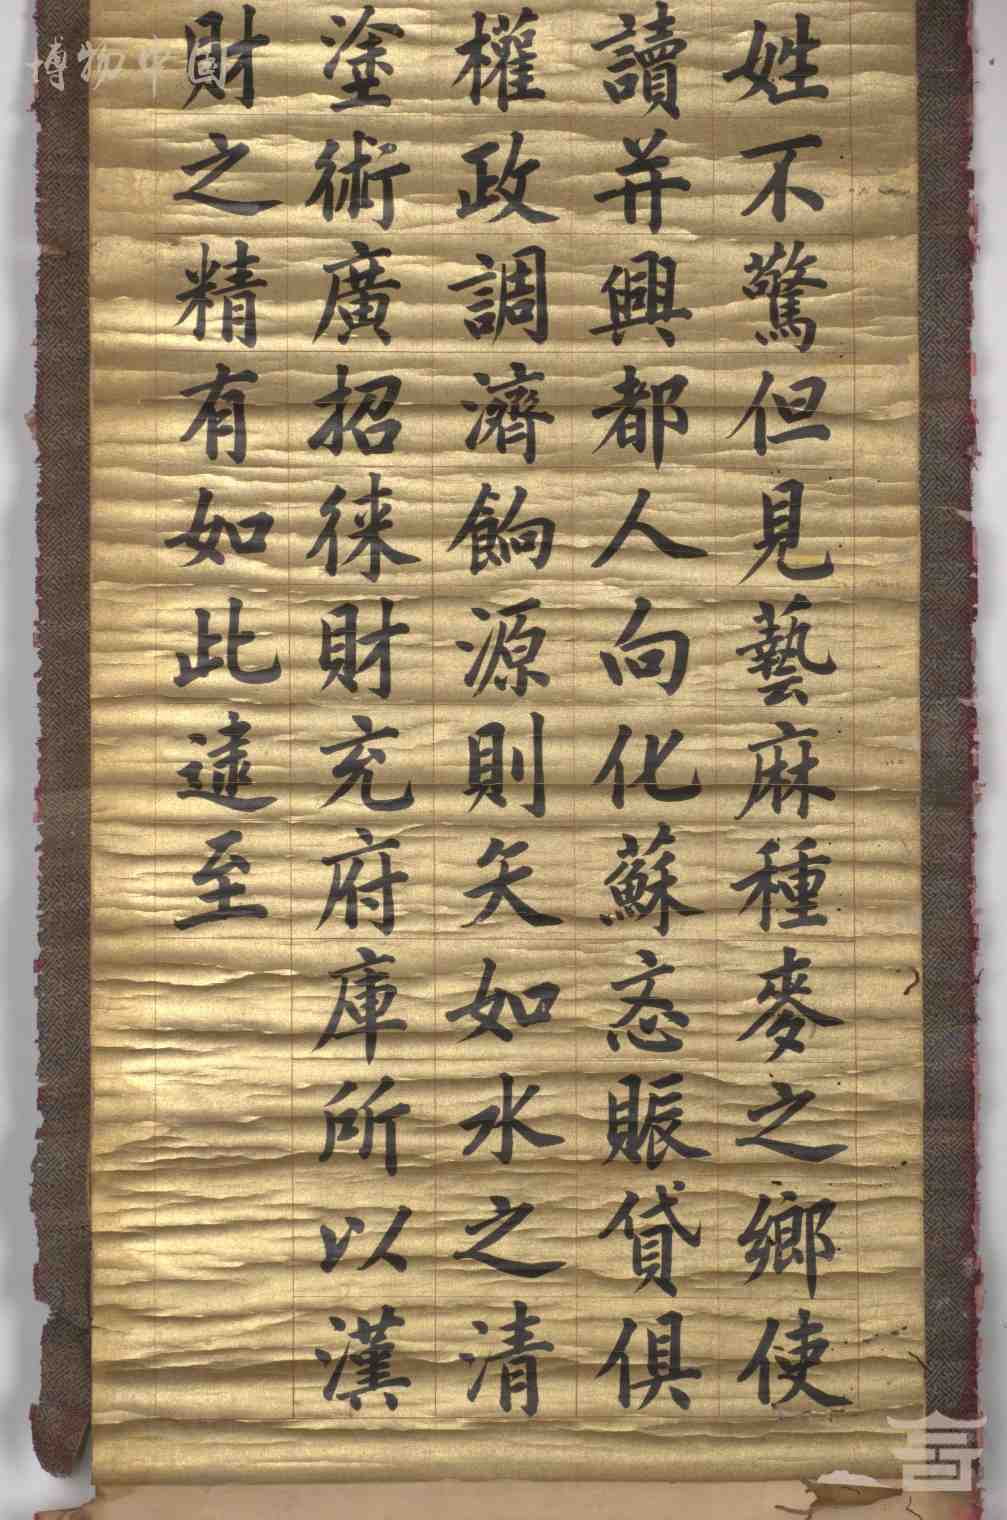 姓不驚但見藝麻種麥之鄉使
讀并興都人向化蘇忞賬貸俱
權政調濟餉源則矢如水之清
塗術廣招徠財充府庫所以漢
財之精有如此逮至
博物中国